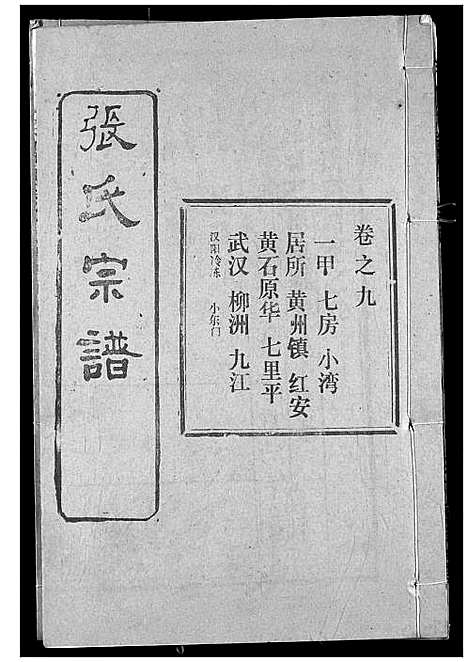 張氏宗譜
卷之九
一甲 七房 小湾
居所 黄州镇 红安
黄石原华 七里平
武汉 柳洲 九江
汉阳冷冻 小东门